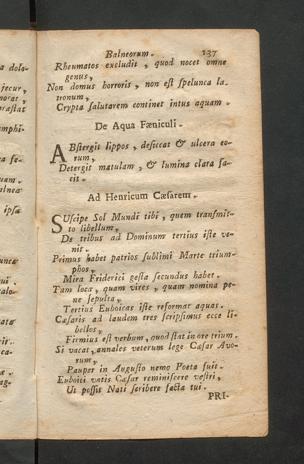 Balneorum. 137
Rheumatos excludit, quod nocet omne
genus,
Non domus horroris, non est spelunca la-
tronum,
Crypta salutarem continet intus aquam.
De Aqua Fæniculi.
ABstergit lippos, desiccat & ulcera eo-
rum,
Detergit matulam, & lumina clara fa-
cit.
Ad Henricum Cæsarem.
SUscipe Sol Mundi tibi, quem transmit-
to libellum,
De tribus ad Dominum tertius iste ve-
nit.
Primus habet patrios sublimi Marte trium-
phos,
Mira Friderici gesta secundus habet.
Tam loca, quam vires, quam nomina pe-
ne sepulta,
Tertius Euboicas iste reformat aquas.
Cæsaris ad laudem tres scripsimus ecce li-
bellos,
Firmius est verbum, quod stat in ore trium.
Si vacat, annales veterum lege Cæsar Avo-
rum,
Pauper in Augusto nemo Poeta fuit.
Euboici vatis Cæsar reminiscere vestri,
Ut possit Nati scribere facta tui.
PRI-